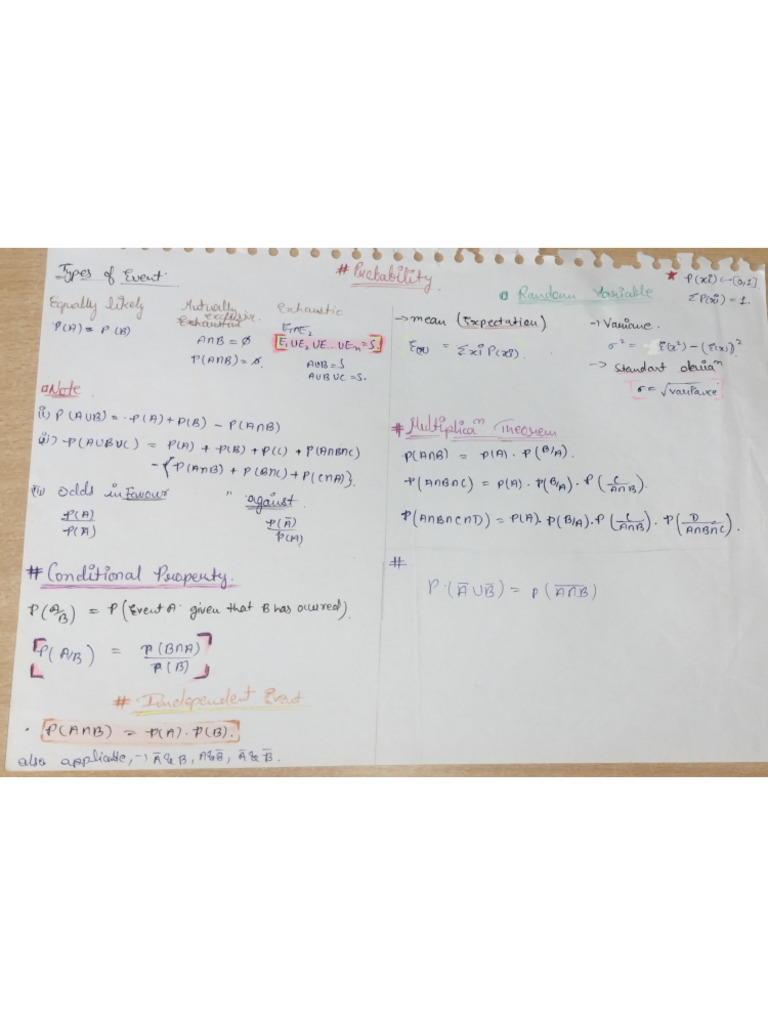 # Probability
Types of Event
Equally likely
P(A) = P(B)
Mutually
exclusive
A∩B = ∅
P(A∩B) = ∅.
Exhaustic
E₁∩E₂
E₁∪E₂∪E...∪Eₙ=S.
A∪B=S
A∪B∪C=S.
Note
i) P(A∪B) = P(A)+P(B) - P(A∩B)
ii) P(A∪B∪C) = P(A) + P(B) + P(C) + P(A∩B∩C)
-{P(A∩B) + P(B∩C) + P(C∩A)}.
odds in Favour " against
P(A)
P(Ā)
P(Ā)
P(A)
# Conditional Properity.
P(A/B) = P(Event A given that B has occured).
P(A/B) = P(B∩A)
P(B)
# Independent Event
P(A∩B) = P(A)·P(B).
also appliable, → Ā & B, A & B̄, Ā & B̄.
★ P(xi) ← [0,1]
ΣP(xi) = 1.
Random Variable
→ mean (Expectation)
E(x) = Σxi P(xi).
→ Variance.
σ² = E(x²) - (E(x))²
→ Standart deviaⁿ
σ = √variance
# Multiplicaⁿ Theorem
P(A∩B) = P(A). P(B/A).
P(A∩B∩C) = P(A). P(B/A). P(C/A∩B).
P(A∩B∩C∩D) = P(A). P(B/A). P(C/A∩B). P(D/A∩B∩C).
#
P.(Ā∪B̄) = P(A̅∩̅B̅)